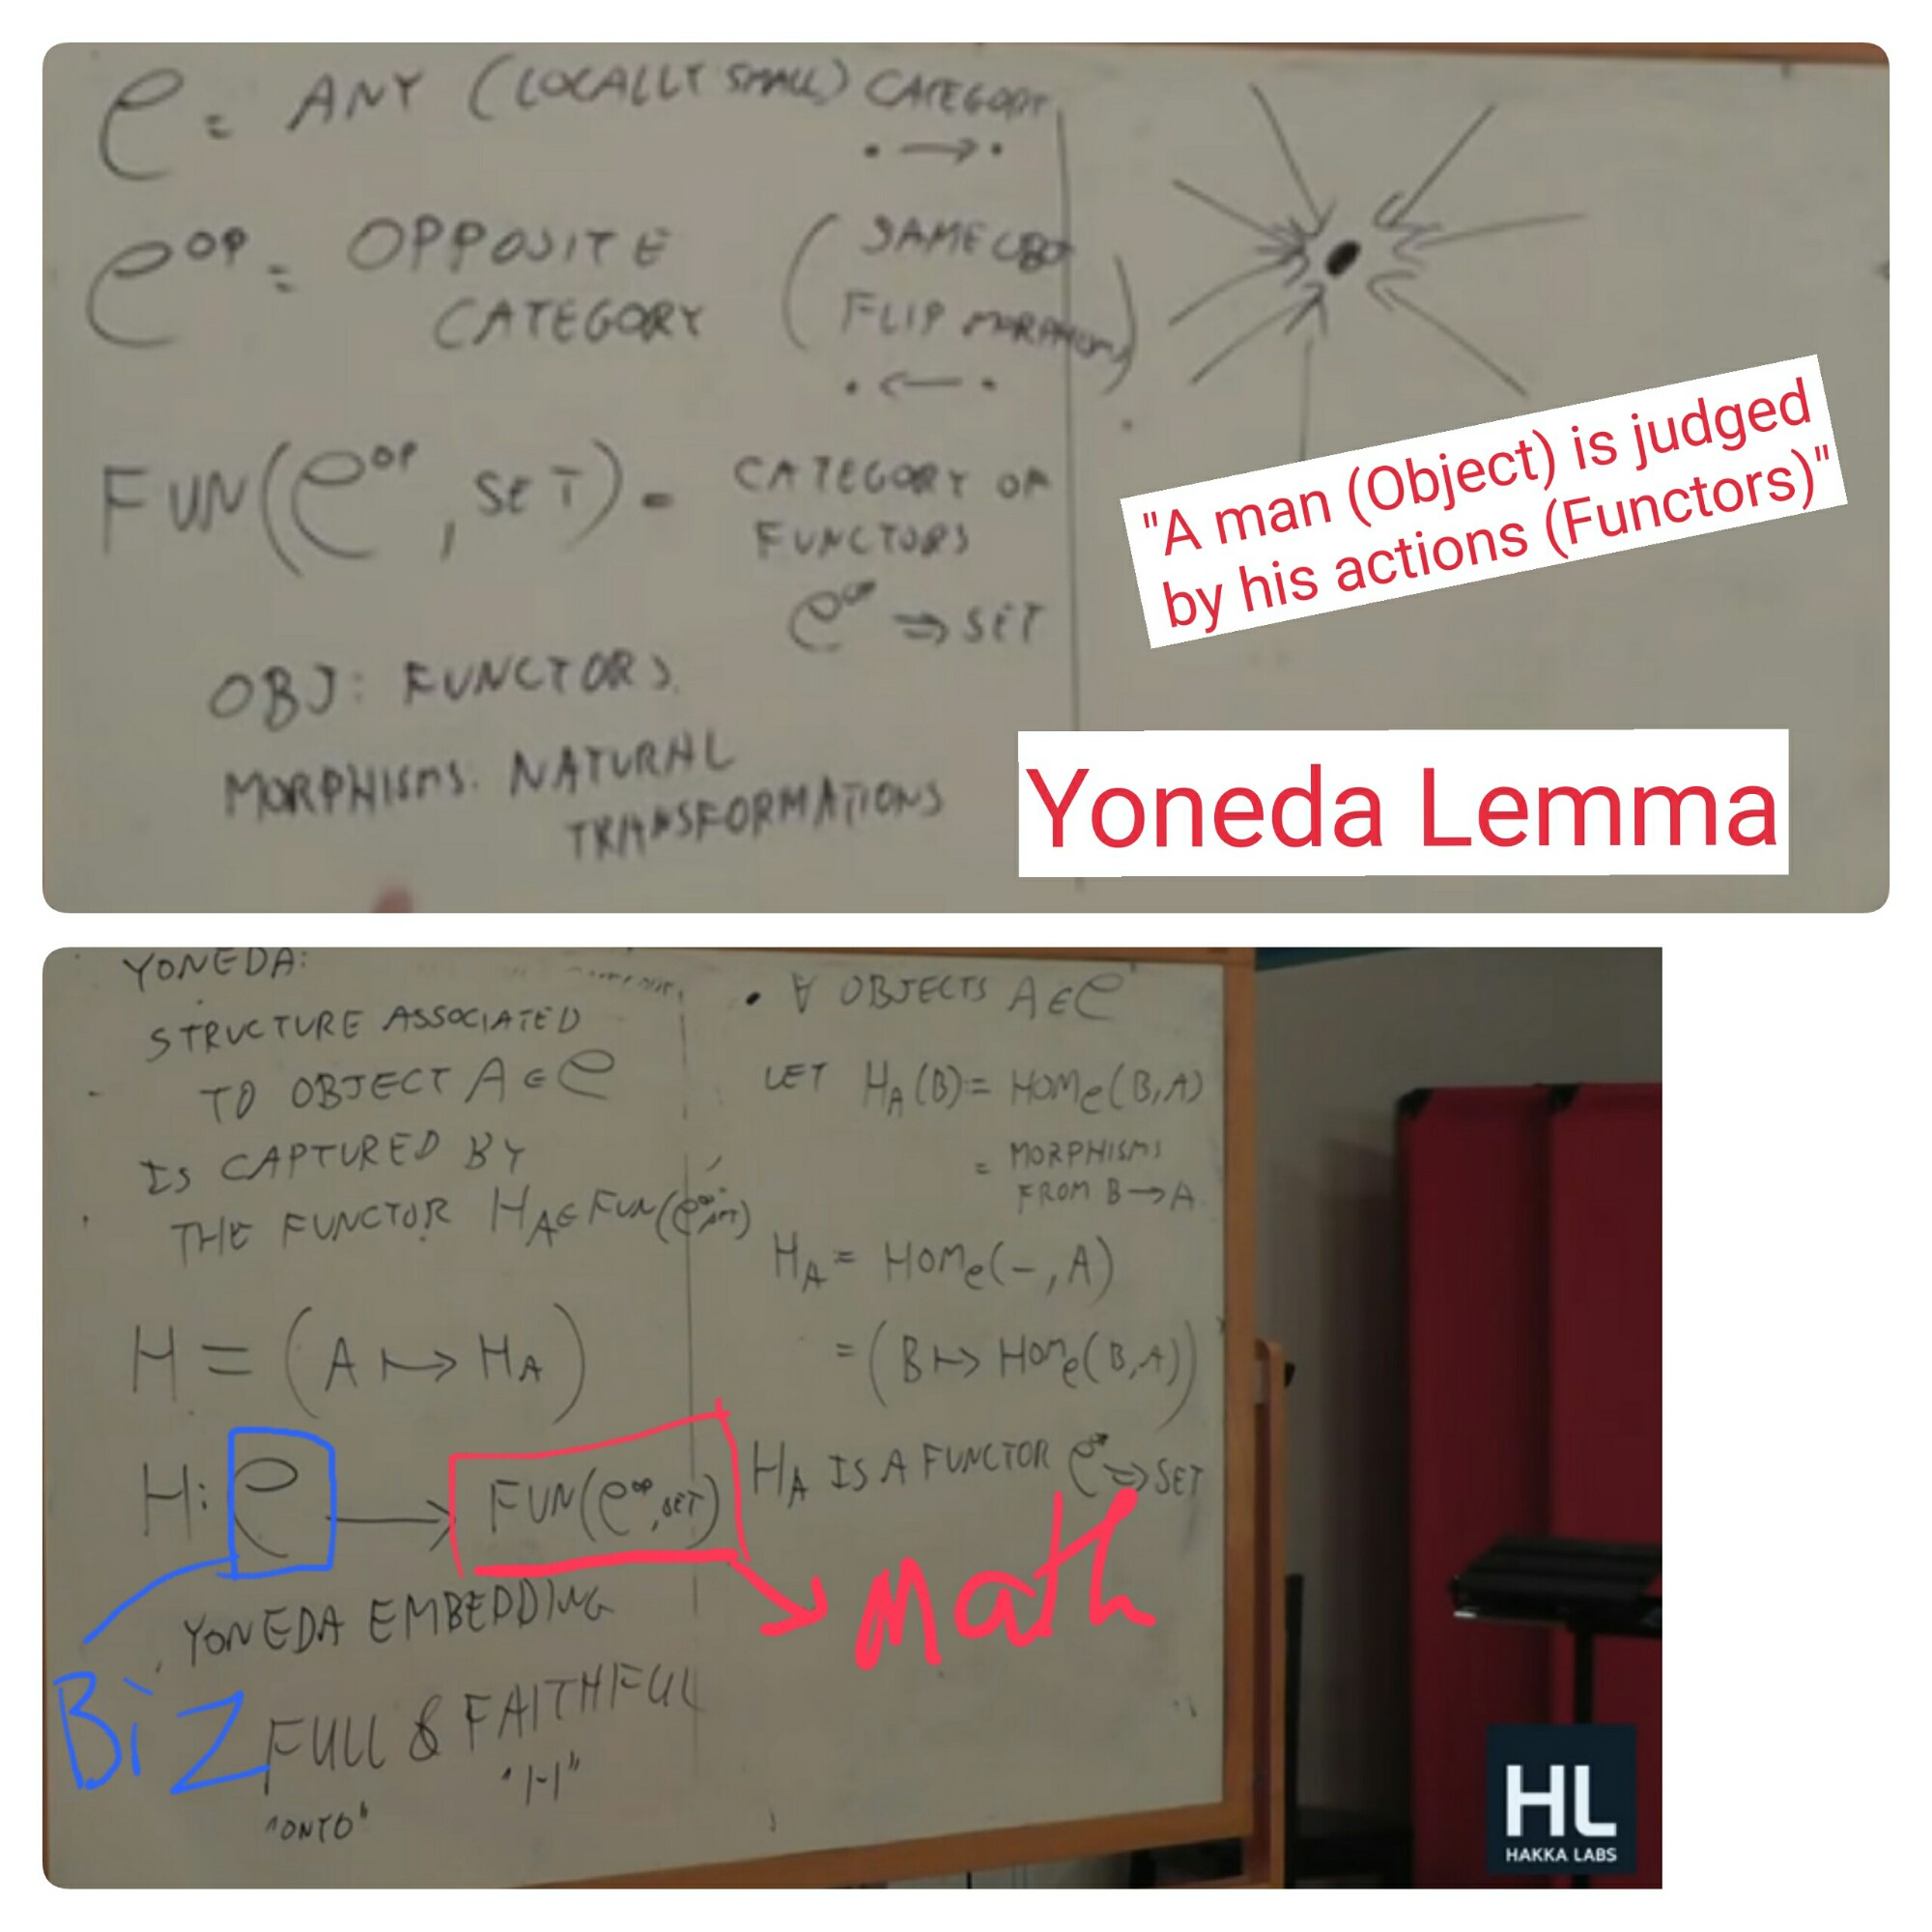 C = ANY (LOCALLY SMALL) CATEGORY
C^OP = OPPOSITE CATEGORY (SAME OBJ FLIP MORPHISMS)
FUN(C^OP, SET) = CATEGORY OF
FUNCTORS
C^OP ⇒ SET
OBJ: FUNCTORS
MORPHISMS: NATURAL
TRANSFORMATIONS
"A man (Object) is judged
by his actions (Functors)"
Yoneda Lemma
YONEDA:
STRUCTURE ASSOCIATED
TO OBJECT A ∈ C
IS CAPTURED BY
THE FUNCTOR H_A ∈ FUN(C^OP, SET)
H = (A ↦ H_A)
H: C → FUN(C^OP, SET)
YONEDA EMBEDDING
FULL & FAITHFUL
"ONTO" "1-1"
Biz
• ∀ OBJECTS A ∈ C
LET H_A(B) := HOM_C(B, A)
= MORPHISMS
FROM B → A
H_A = HOM_C(-, A)
= (B ↦ HOM_C(B, A))
H_A IS A FUNCTOR C^OP ⇒ SET
Math
HL
HAKKA LABS